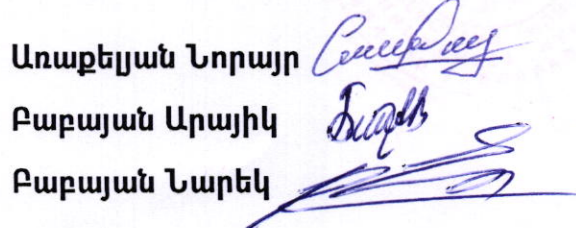 Առաքելյան Նորայր
Բաբայան Արայիկ
Բաբայան Նարեկ